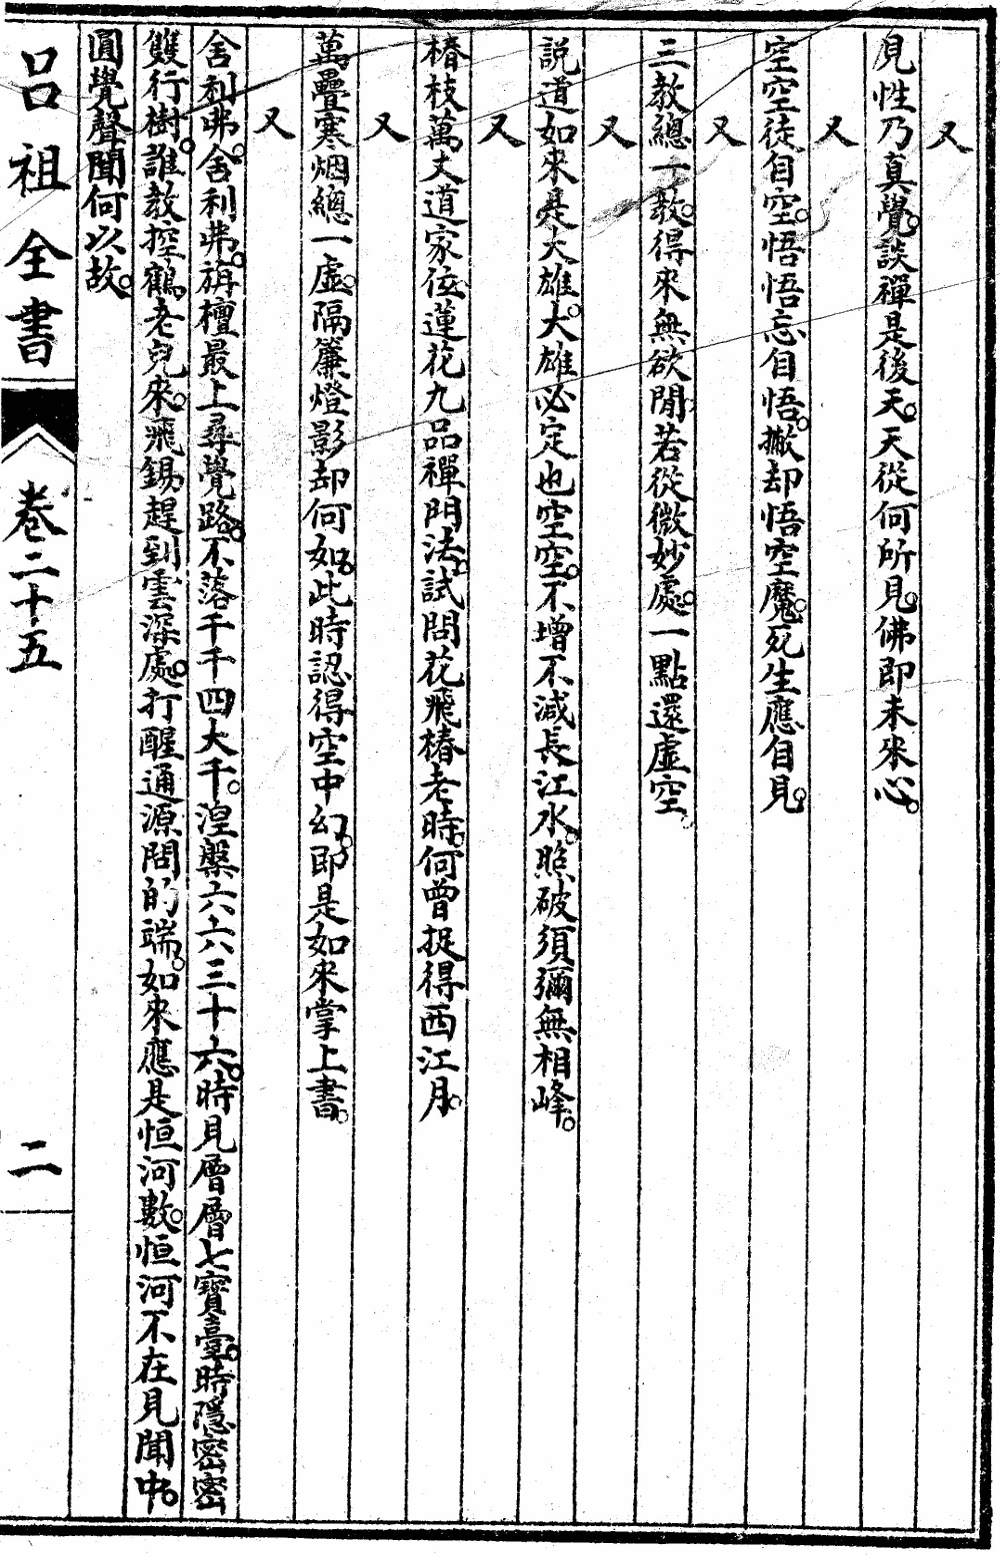 又
見性乃真覺。談禪是後天。天從何所見。佛即未來心。
又
空空徒自空。悟悟忘自悟。撇却悟空魔。死生應自見。
又
三教總一教。得來無欲閒。若從微妙處。一點還虛空。
又
説道如來是大雄。大雄必定也空空。不增不減長江水。照破須彌無相峰。
又
椿枝萬丈道家位。蓮花九品禪門法。試問花飛椿老時。何曾捉得西江月。
又
萬疊寒烟總一虛。隔簾燈影却何如。此時認得空中幻。即是如來掌上書。
又
舍利弗。舍利弗。旃檀最上尋覺路。不落千千四大千。湼槃六六三十六。時見層層七寶臺。時隱密密
雙行樹。誰教控鶴老兒來。飛錫趕到雲深處。打醒通源問的端。如來應是恒河數。恒河不在見聞中。
圓覺聲聞何以故。
呂祖全書 卷二十五 二